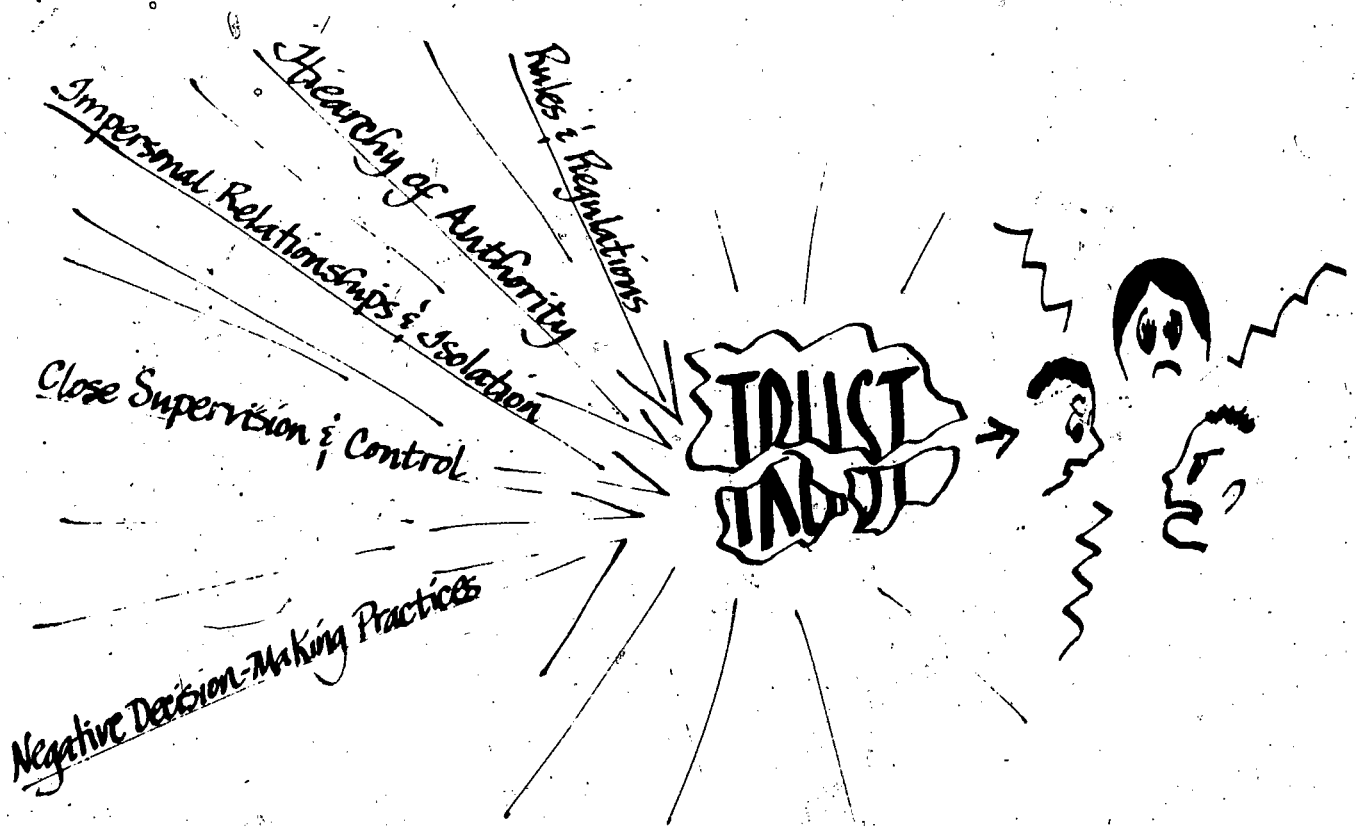 Rules & Regulations
Hiearchy of Authority
Impersonal Relationships & Isolation
Close Supervision & Control
Negative Decision-Making Practices
TRUST